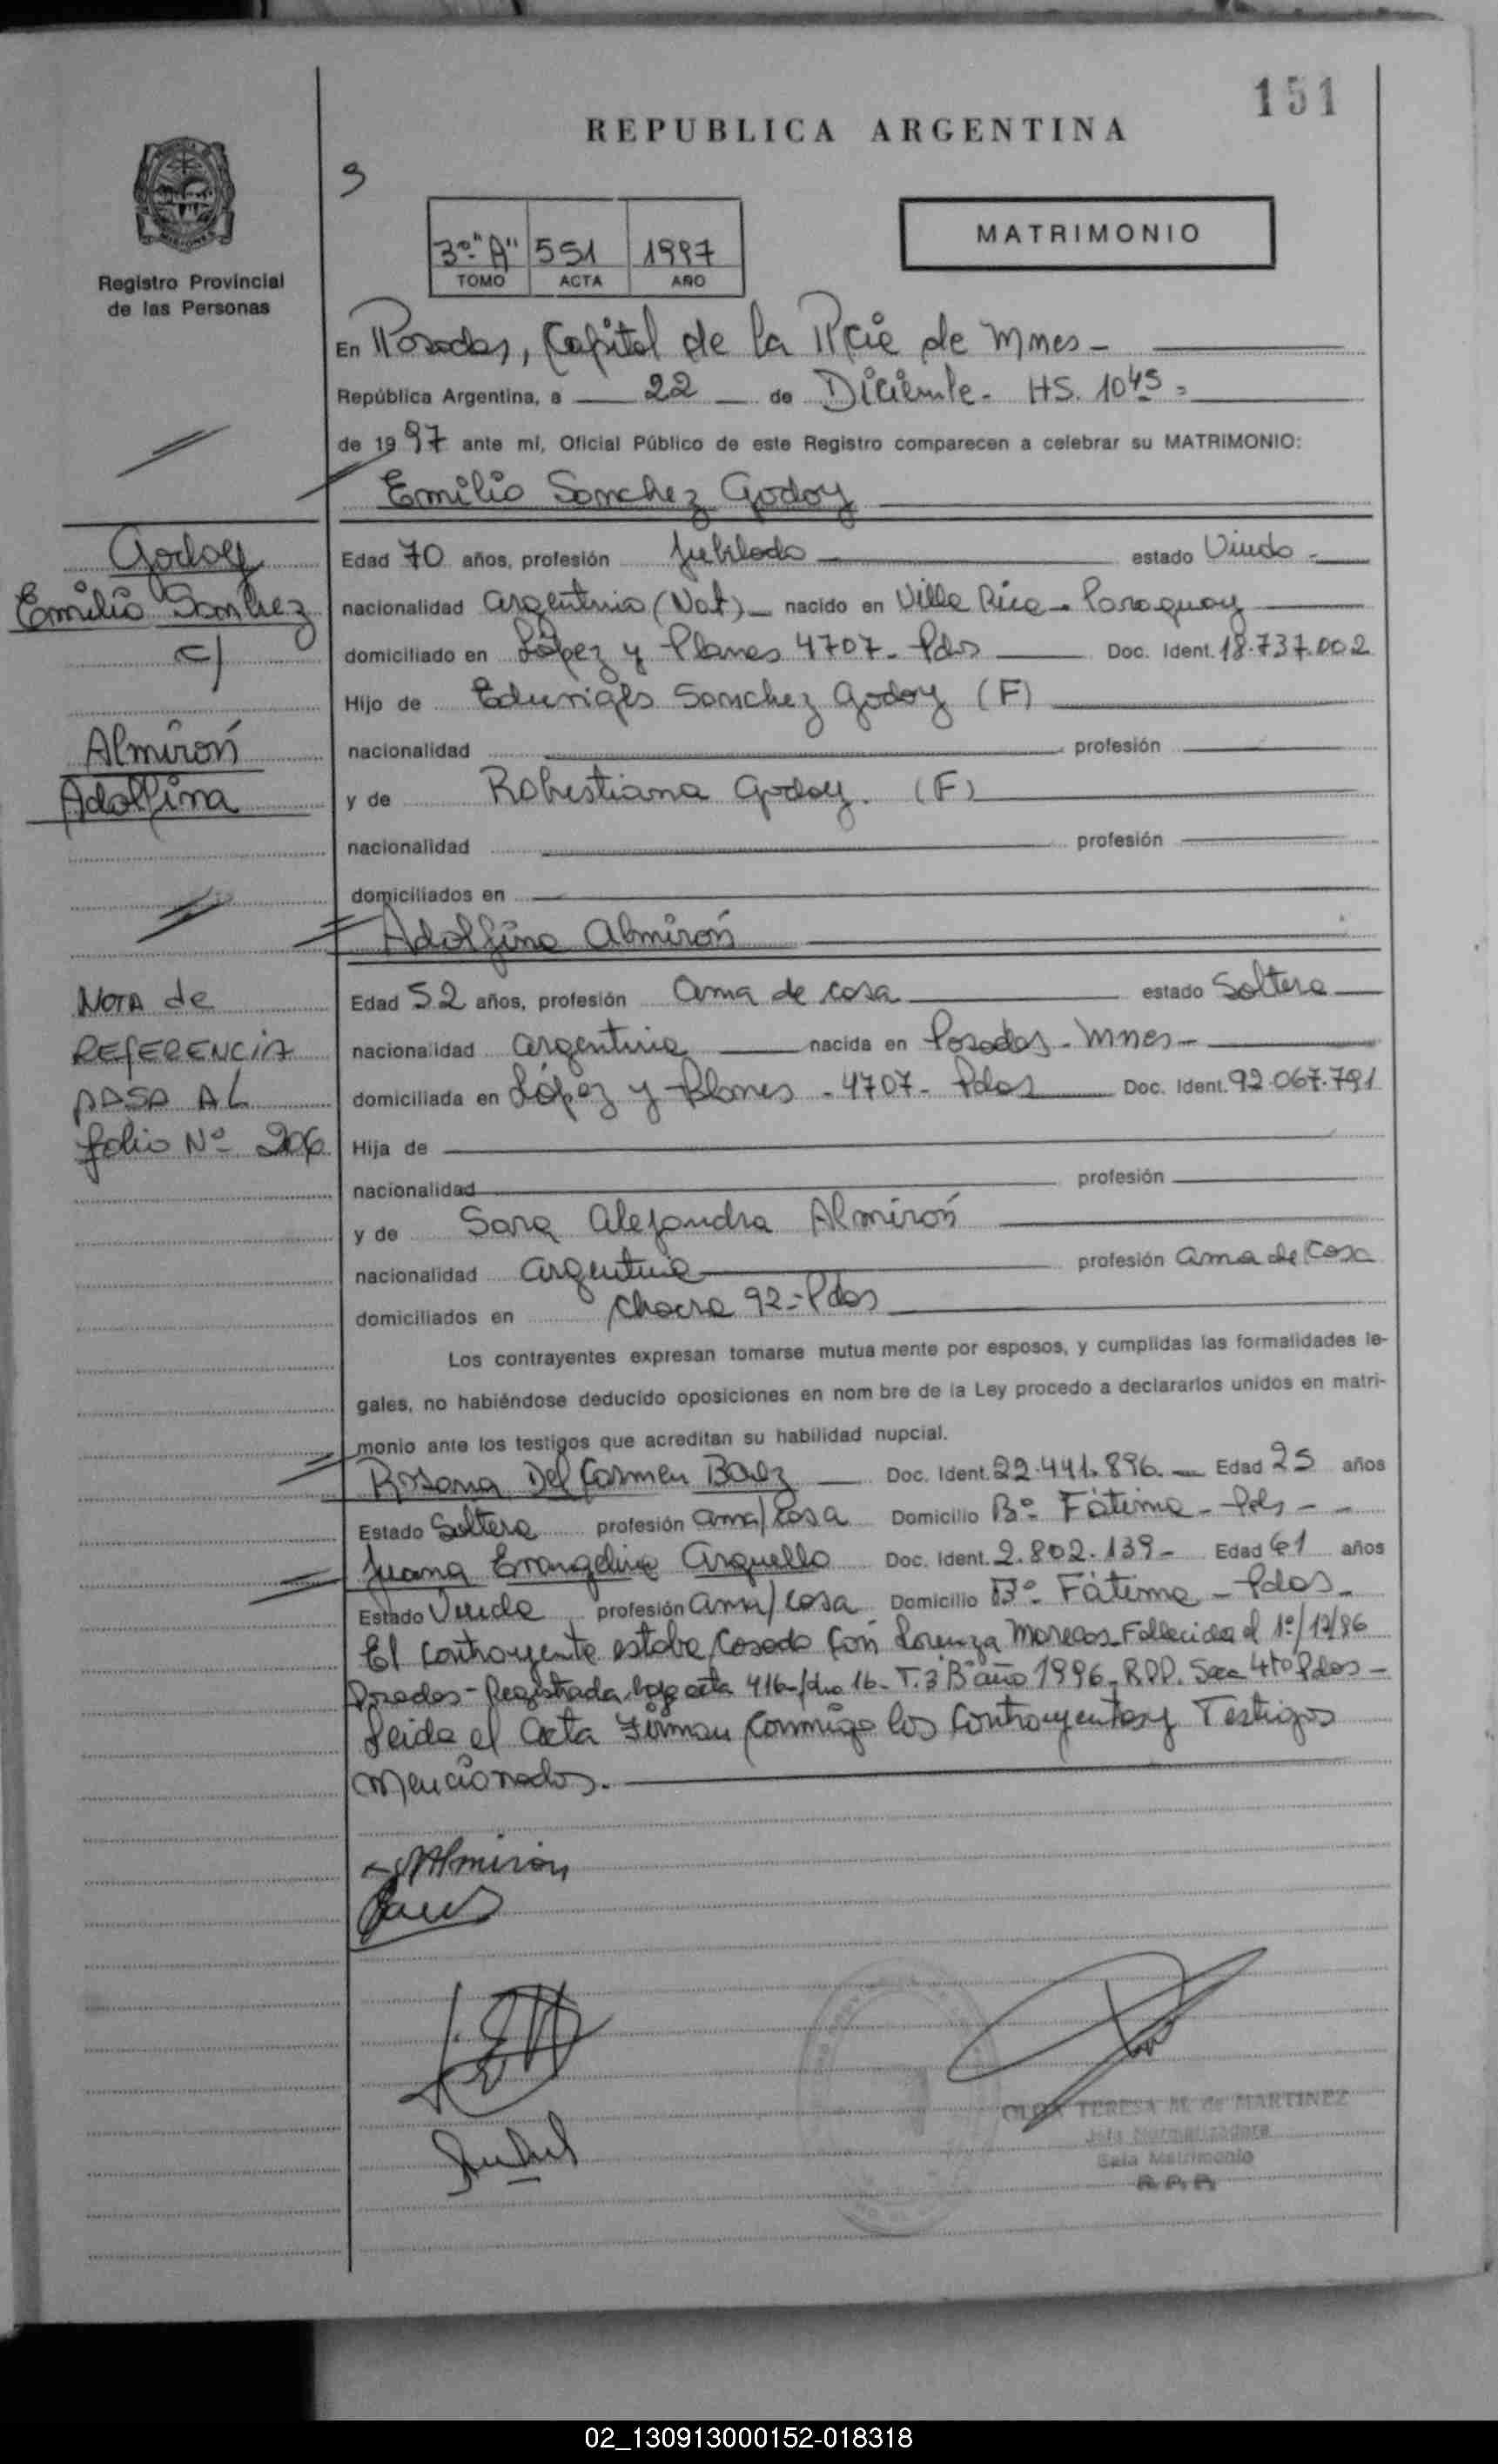 151
REPUBLICA ARGENTINA
3
MATRIMONIO
3º "A" 551 1997
TOMO ACTA AÑO
Registro Provincial
de las Personas
En Posadas, Capital de la Pcia de Mnes -
República Argentina, a 22 de Diciembre - HS. 10 45 =
de 1997 ante mí, Oficial Público de este Registro comparecen a celebrar su MATRIMONIO:
Emilio Sanchez Godoy
Godoy
Emilio Sanchez
c/
Almirón
Adolfina
Edad 70 años, profesión Jubilado estado Viudo -
nacionalidad argentino (Nat) - nacido en Villa Rica - Paraguay
domiciliado en López y Planes 4707 - Pdas Doc. Ident. 18.737.002
Hijo de Eduviges Sanchez Godoy (F)
nacionalidad profesión
y de Robustiana Godoy. (F)
nacionalidad profesión
domiciliados en
Adolfina Almirón
NOTA de
REFERENCIA
PASA AL
folio Nº 206
Edad 52 años, profesión ama de casa estado Soltera
nacionalidad argentina nacida en Posadas - Mnes -
domiciliada en López y Planes - 4707 - Pdas Doc. Ident. 92.067.791
Hija de
nacionalidad profesión
y de Sara Alejandra Almirón
nacionalidad argentina profesión ama de casa
domiciliados en Chacra 92 - Pdas
Los contrayentes expresan tomarse mutua mente por esposos, y cumplidas las formalidades le-
gales, no habiéndose deducido oposiciones en nom bre de la Ley procedo a declararlos unidos en matri-
monio ante los testigos que acreditan su habilidad nupcial.
Rosana Del Carmen Baez Doc. Ident. 22.441.896. - Edad 25 años
Estado Soltera profesión ama/casa Domicilio Bº Fátima - Pdas - -
Juana Evangelina Arguello Doc. Ident. 2.802.139 - Edad 61 años
Estado Viuda profesión ama/casa Domicilio Bº Fátima - Pdas -
El contrayente estaba casado con Lorenza Marecos - Fallecida el 1º/12/86
Posadas - Registrada bajo acta 416 - 16 - T. 3 "B" año 1996 - R.P.P. Secc 4to Pdas -
Leida el acta Firman conmigo los contrayentes y Testigos
mencionados.
Almiron
OLGA TERESA M. de MARTINEZ
Jefa Normalizadora
Sala Matrimonio
R.P.P.
02_130913000152-018318